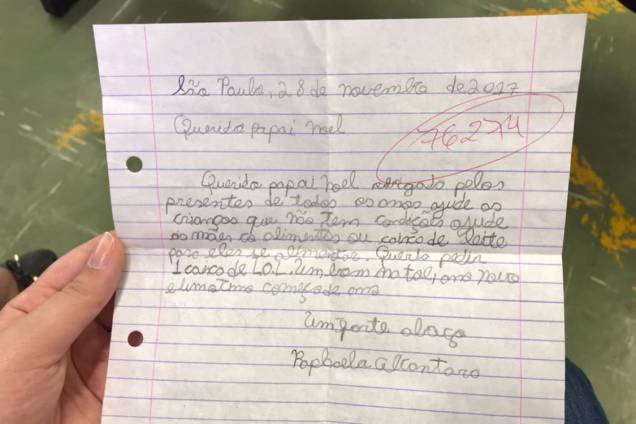 São Paulo, 28 de novembro de 2017
Querido papai noel
76274
Querido papai noel obrigado pelos
presentes de todos os anos ajude as
crianças que não tem condições ajude
as mães co alimentos ou caixa de leite
para eles se alimentar. Queria pedir
1 caixa de L.O.L. um bom natal, ano novo
e um otimo começo de ano
um forte abaço
Raphaela alcantara